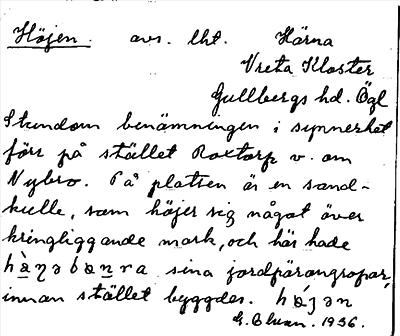 Höjen. avs. lht. Härna
Vreta Kloster
Gullbergs hd. Ögl
Stundom benämningen i synnerhet
förr på stället Roxtorp v. om
Nybro. På platsen är en sand-
kulle, som höjer sig något över
kringliggande mark, och här hade
sina jordpärongropar,
innan stället byggdes.
1936.